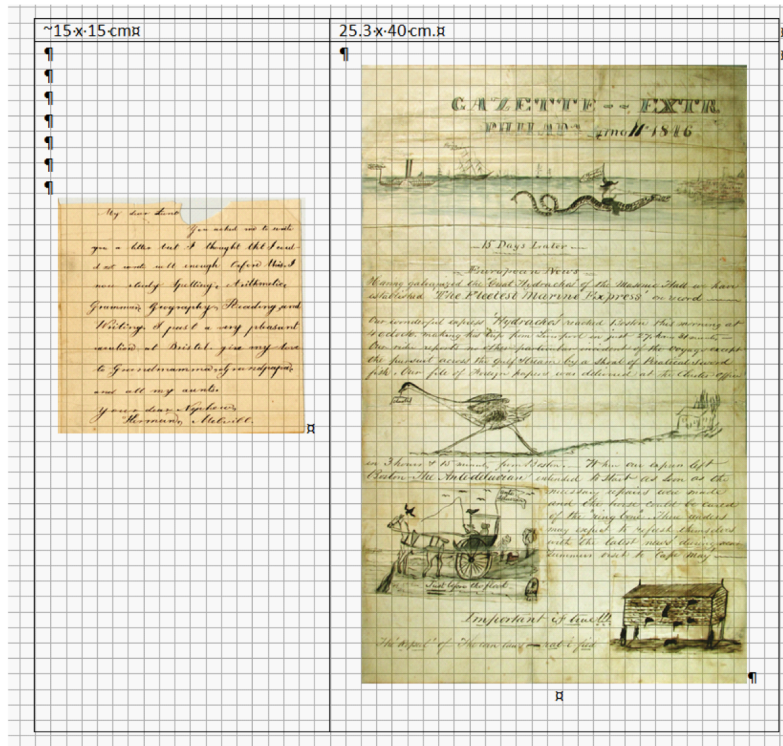 ~15·x·15·cm¤
25.3·x·40·cm.¤
My dear Aunt
You asked me to write
you a letter but I thought that I could
not write well enough before this. I
now study Spelling, Arithmetic,
Grammar, Geography, Reading, and
Writing. I past a very pleasant
vacation at Bristol. give my love
to Grandmamma, Grandpapa,
and all my aunts.
Your dear Nephew,
Herman Melvill.
GAZETTE EXTR
PHILAD 1846
15 Days Later
European News
Having galvanized the Great Hydrachos of the Masonic Hall we have
established "The Fleetest Marine Express" on record
Our wonderful express "Hydrachos" reached Boston this morning at
o'clock, making the trip from Liverpool in just 27
Our rider reports no other particular incident of the voyage except
the pursuit across the Gulf Stream by a shoal of
fish. Our file of Foreign papers was delivered at the
in 3 hours & 15 from Boston. When our express left
Boston The Antediluvian intended to start as soon as the
necessary repairs were made
and the horse could be cured
of the "ring bone". Then readers
may expect to refresh themselves
with the latest news during
summer visit to Cape May
Just before the
Important if true!!!
The depart of